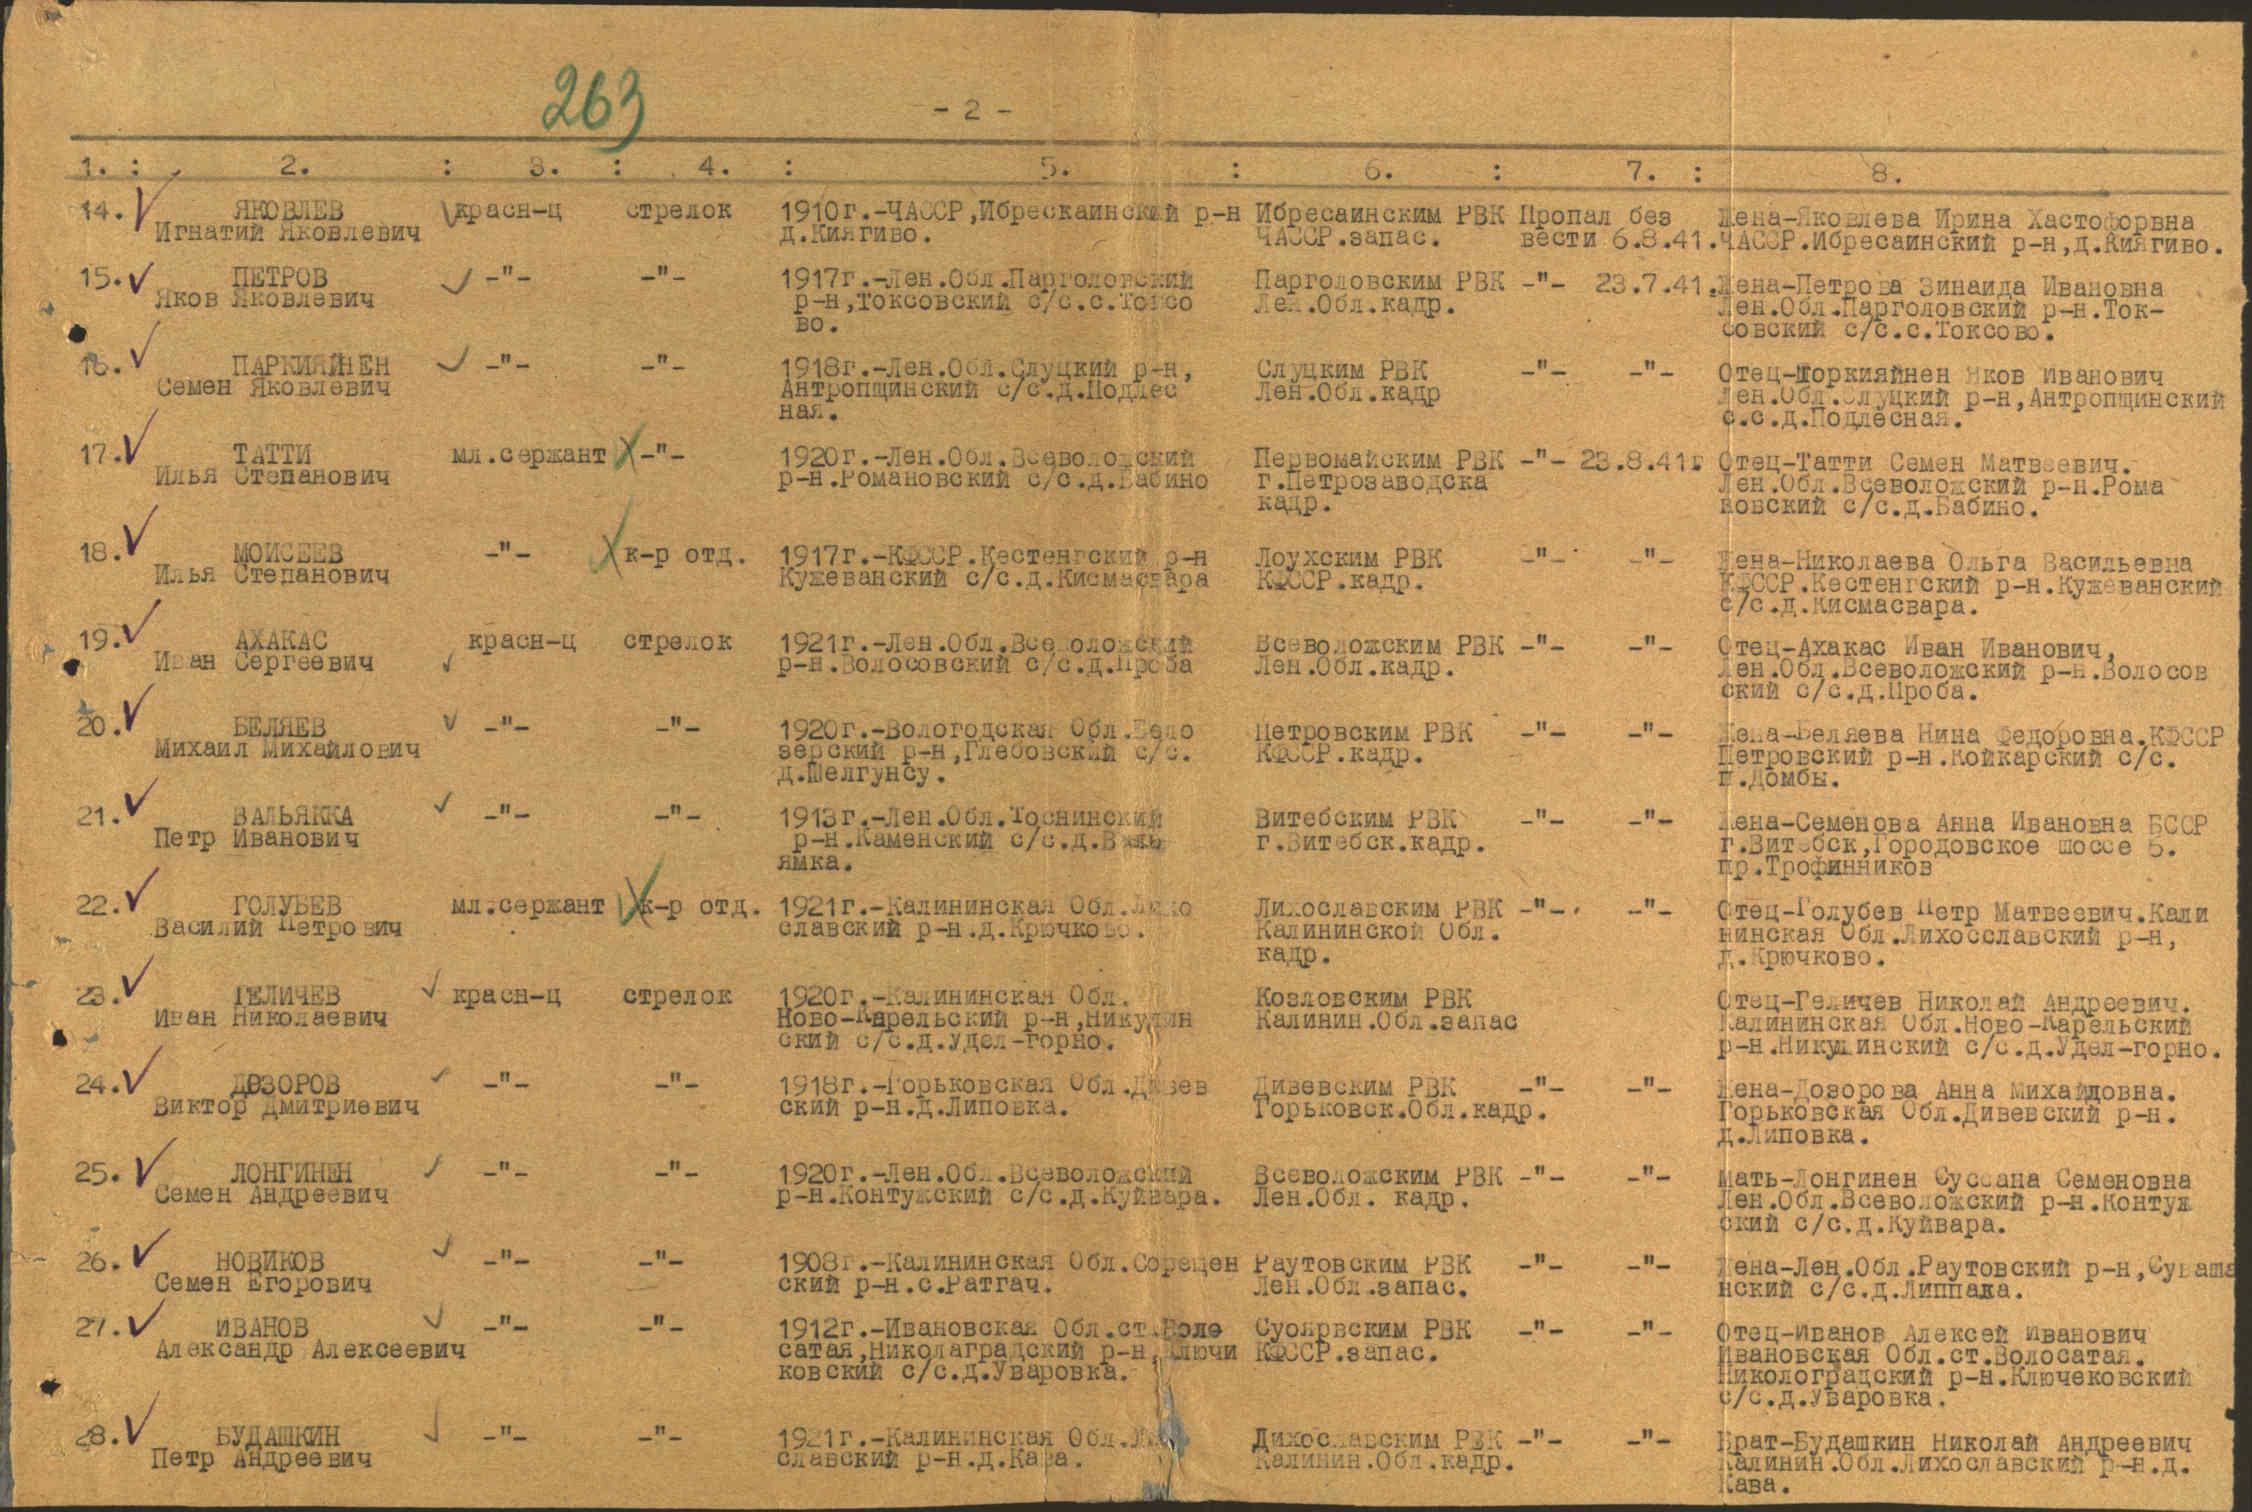 263
- 2 -
1. : 2. : 3. : 4. : 5. : 6. : 7. : 8.
14. ЯКОВЛЕВ красн-ц стрелок 1910г.-ЧАССР,Ибрескаинский р-н Ибресаинским РВК Пропал без Жена-Яковлева Ирина Хастофорвна
Игнатий Яковлевич д.Киягиво. ЧАССР.запас. вести 6.8.41. ЧАССР.Ибресаинский р-н,д.Киягиво.
15. ПЕТРОВ -"- -"- 1917г.-Лен.Обл.Парголовский Парголовским РВК -"- 23.7.41. Жена-Петрова Зинаида Ивановна
Яков Яковлевич р-н,Токсовский с/с.с.Токсо Лен.Обл.кадр. Лен.Обл.Парголовский р-н.Ток-
во. совский с/с.с.Токсово.
16. ПАРКИЯЙНЕН -"- -"- 1918г.-Лен.Обл.Слуцкий р-н, Слуцким РВК -"- -"- Отец-Поркияйнен Яков Иванович
Семен Яковлевич Антропщинский с/с.д.Подлес Лен.Обл.кадр Лен.Обл.Слуцкий р-н,Антропщинский
ная. с.с.д.Подлесная.
17. ТАТТИ мл.сержант -"- 1920г.-Лен.Обл.Всеволожский Первомайским РВК -"- 23.8.41г Отец-Татти Семен Матвеевич.
Илья Степанович р-н.Романовский с/с.д.Бабино г.Петрозаводска Лен.Обл.Всеволожский р-н.Рома
кадр. новский с/с.д.Бабино.
18. МОИСЕЕВ -"- к-р отд. 1917г.-КФССР.Кестенгский р-н Лоухским РВК -"- -"- Жена-Николаева Ольга Васильевна
Илья Степанович Кужеванский с/с.д.Кисмасвара КФССР.кадр. КФССР.Кестенгский р-н.Кужеванский
с/с.д.Кисмасвара.
19. АХАКАС красн-ц стрелок 1921г.-Лен.Обл.Всеволожский Всеволожским РВК -"- -"- Отец-Ахакас Иван Иванович,
Иван Сергеевич р-н.Волосовский с/с.д.Проба Лен.Обл.кадр. Лен.Обл.Всеволожский р-н.Волосов
ский с/с.д.Проба.
20. БЕЛЯЕВ -"- -"- 1920г.-Вологодская Обл.Бело Петровским РВК -"- -"- Жена-Беляева Нина Федоровна.КФССР
Михаил Михайлович зерский р-н,Глебовский с/с. КФССР.кадр. Петровский р-н.Койкарский с/с.
д.Шелгунсу. п.Домбы.
21. ВАЛЬЯККА -"- -"- 1913г.-Лен.Обл.Тоснинский Витебским РВК -"- -"- Жена-Семенова Анна Ивановна БССР
Петр Иванович р-н.Каменский с/с.д. г.Витебск.кадр. г.Витебск,Городовское шоссе 5.
ямка. пр.Трофинников
22. ГОЛУБЕВ мл.сержант к-р отд. 1921г.-Калининская Обл.Лихо Лихославским РВК -"- -"- Отец-Голубев Петр Матвеевич.Кали
Василий Петрович славский р-н.д.Крючково. Калининской Обл. нинская Обл.Лихосславский р-н,
кадр. д.Крючково.
23. ГЕЛИЧЕВ красн-ц стрелок 1920г.-Калининская Обл. Козловским РВК Отец-Геличев Николай Андреевич.
Иван Николаевич Ново-Карельский р-н,Никулин Калинин.Обл.запас Калининская Обл.Ново-Карельский
ский с/с.д.Удел-горно. р-н.Никулинский с/с.д.Удел-горно.
24. ДОЗОРОВ -"- -"- 1918г.-Горьковская Обл.Дивев Дивевским РВК -"- -"- Жена-Дозорова Анна Михайловна.
Виктор Дмитриевич ский р-н.д.Липовка. Горьковск.Обл.кадр. Горьковская Обл.Дивевский р-н.
д.Липовка.
25. ЛОНГИНЕН -"- -"- 1920г.-Лен.Обл.Всеволожский Всеволожским РВК -"- -"- Мать-Лонгинен Суссана Семеновна
Семен Андреевич р-н.Контужский с/с.д.Куйвара. Лен.Обл. кадр. Лен.Обл.Всеволожский р-н.Контуж
ский с/с.д.Куйвара.
26. НОВИКОВ -"- -"- 1908г.-Калининская Обл.Сорецен Раутовским РВК -"- -"- Жена-Лен.Обл.Раутовский р-н,Суваша
Семен Егорович ский р-н.с.Ратгач. Лен.Обл.запас. нский с/с.д.Липпала.
27. ИВАНОВ -"- -"- 1912г.-Ивановская Обл.ст.Воло Суоярвским РВК -"- -"- Отец-Иванов Алексей Иванович
Александр Алексеевич сатая,Николаградский р-н,Ключи КФССР.запас. Ивановская Обл.ст.Волосатая.
ковский с/с.д.Уваровка. Николоградский р-н.Ключековский
с/с.д.Уваровка.
28. БУДАШКИН -"- -"- 1921г.-Калининская Обл. Лихославским РВК -"- -"- Брат-Будашкин Николай Андреевич
Петр Андреевич славский р-н.д.Кава. Калинин.Обл.кадр. Калинин.Обл.Лихославский р-н.д.
Кава.